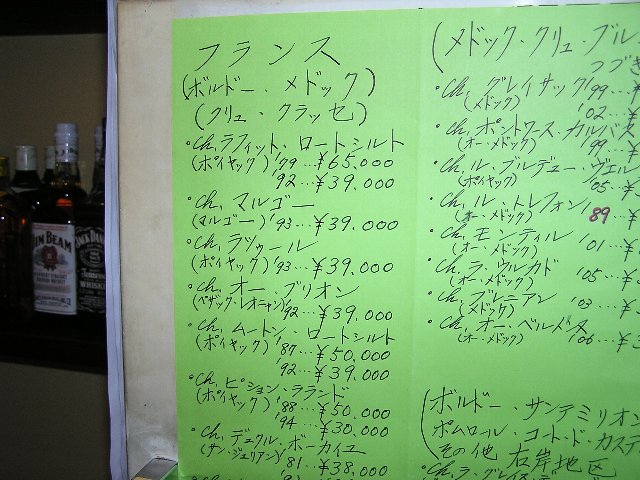 フランス
(ボルドー、メドック)
(クリュ・クラッセ)
・Ch,ラフィット、ロートシルト
(ポイヤック)'79…¥65.000
'92…¥39.000
・Ch,マルゴー
(マルゴー)'93…¥39.000
・Ch,ラツゥール
(ポイヤック)'93…¥39.000
・Ch,オー・ブリオン
(ペサック・レオニャン)'92…¥39.000
・Ch,ムートン、ロートシルト
(ポイヤック)'87…¥50.000
'92…¥39.000
・Ch,ピション・ラランド
(ポイヤック)'88…¥50.000
'94…¥30.000
・Ch,デュクル・ボーカイユ
(サン・ジュリアン)'81…¥38.000
(メドック・クリュ・ブル
つづき
・Ch,グレイサック'99…¥
(メドック)'02…¥
・Ch,ポントワース・カルバス
(オー・メドック)'99…¥
・Ch,ル・ブルデュー・ヴェル
(ポイヤック)'05…¥
・Ch,ル・トレフォン,
(オー・メドック)'89…¥
・Ch,モンティル
(オー・メドック)'01…¥
・Ch,ラ・ウルカド
(オー・メドック)'05…¥
・Ch,ブルニアン
(メドック)'03…¥
・Ch,オー・ベルメス
(オー・メドック)'06…¥3
(ボルドー、サンテミリオン
ポムロール、コート・ド・カステ
その他 右岸地区
JIM BEAM
JACK DAN
Tennessee
WHISKEY